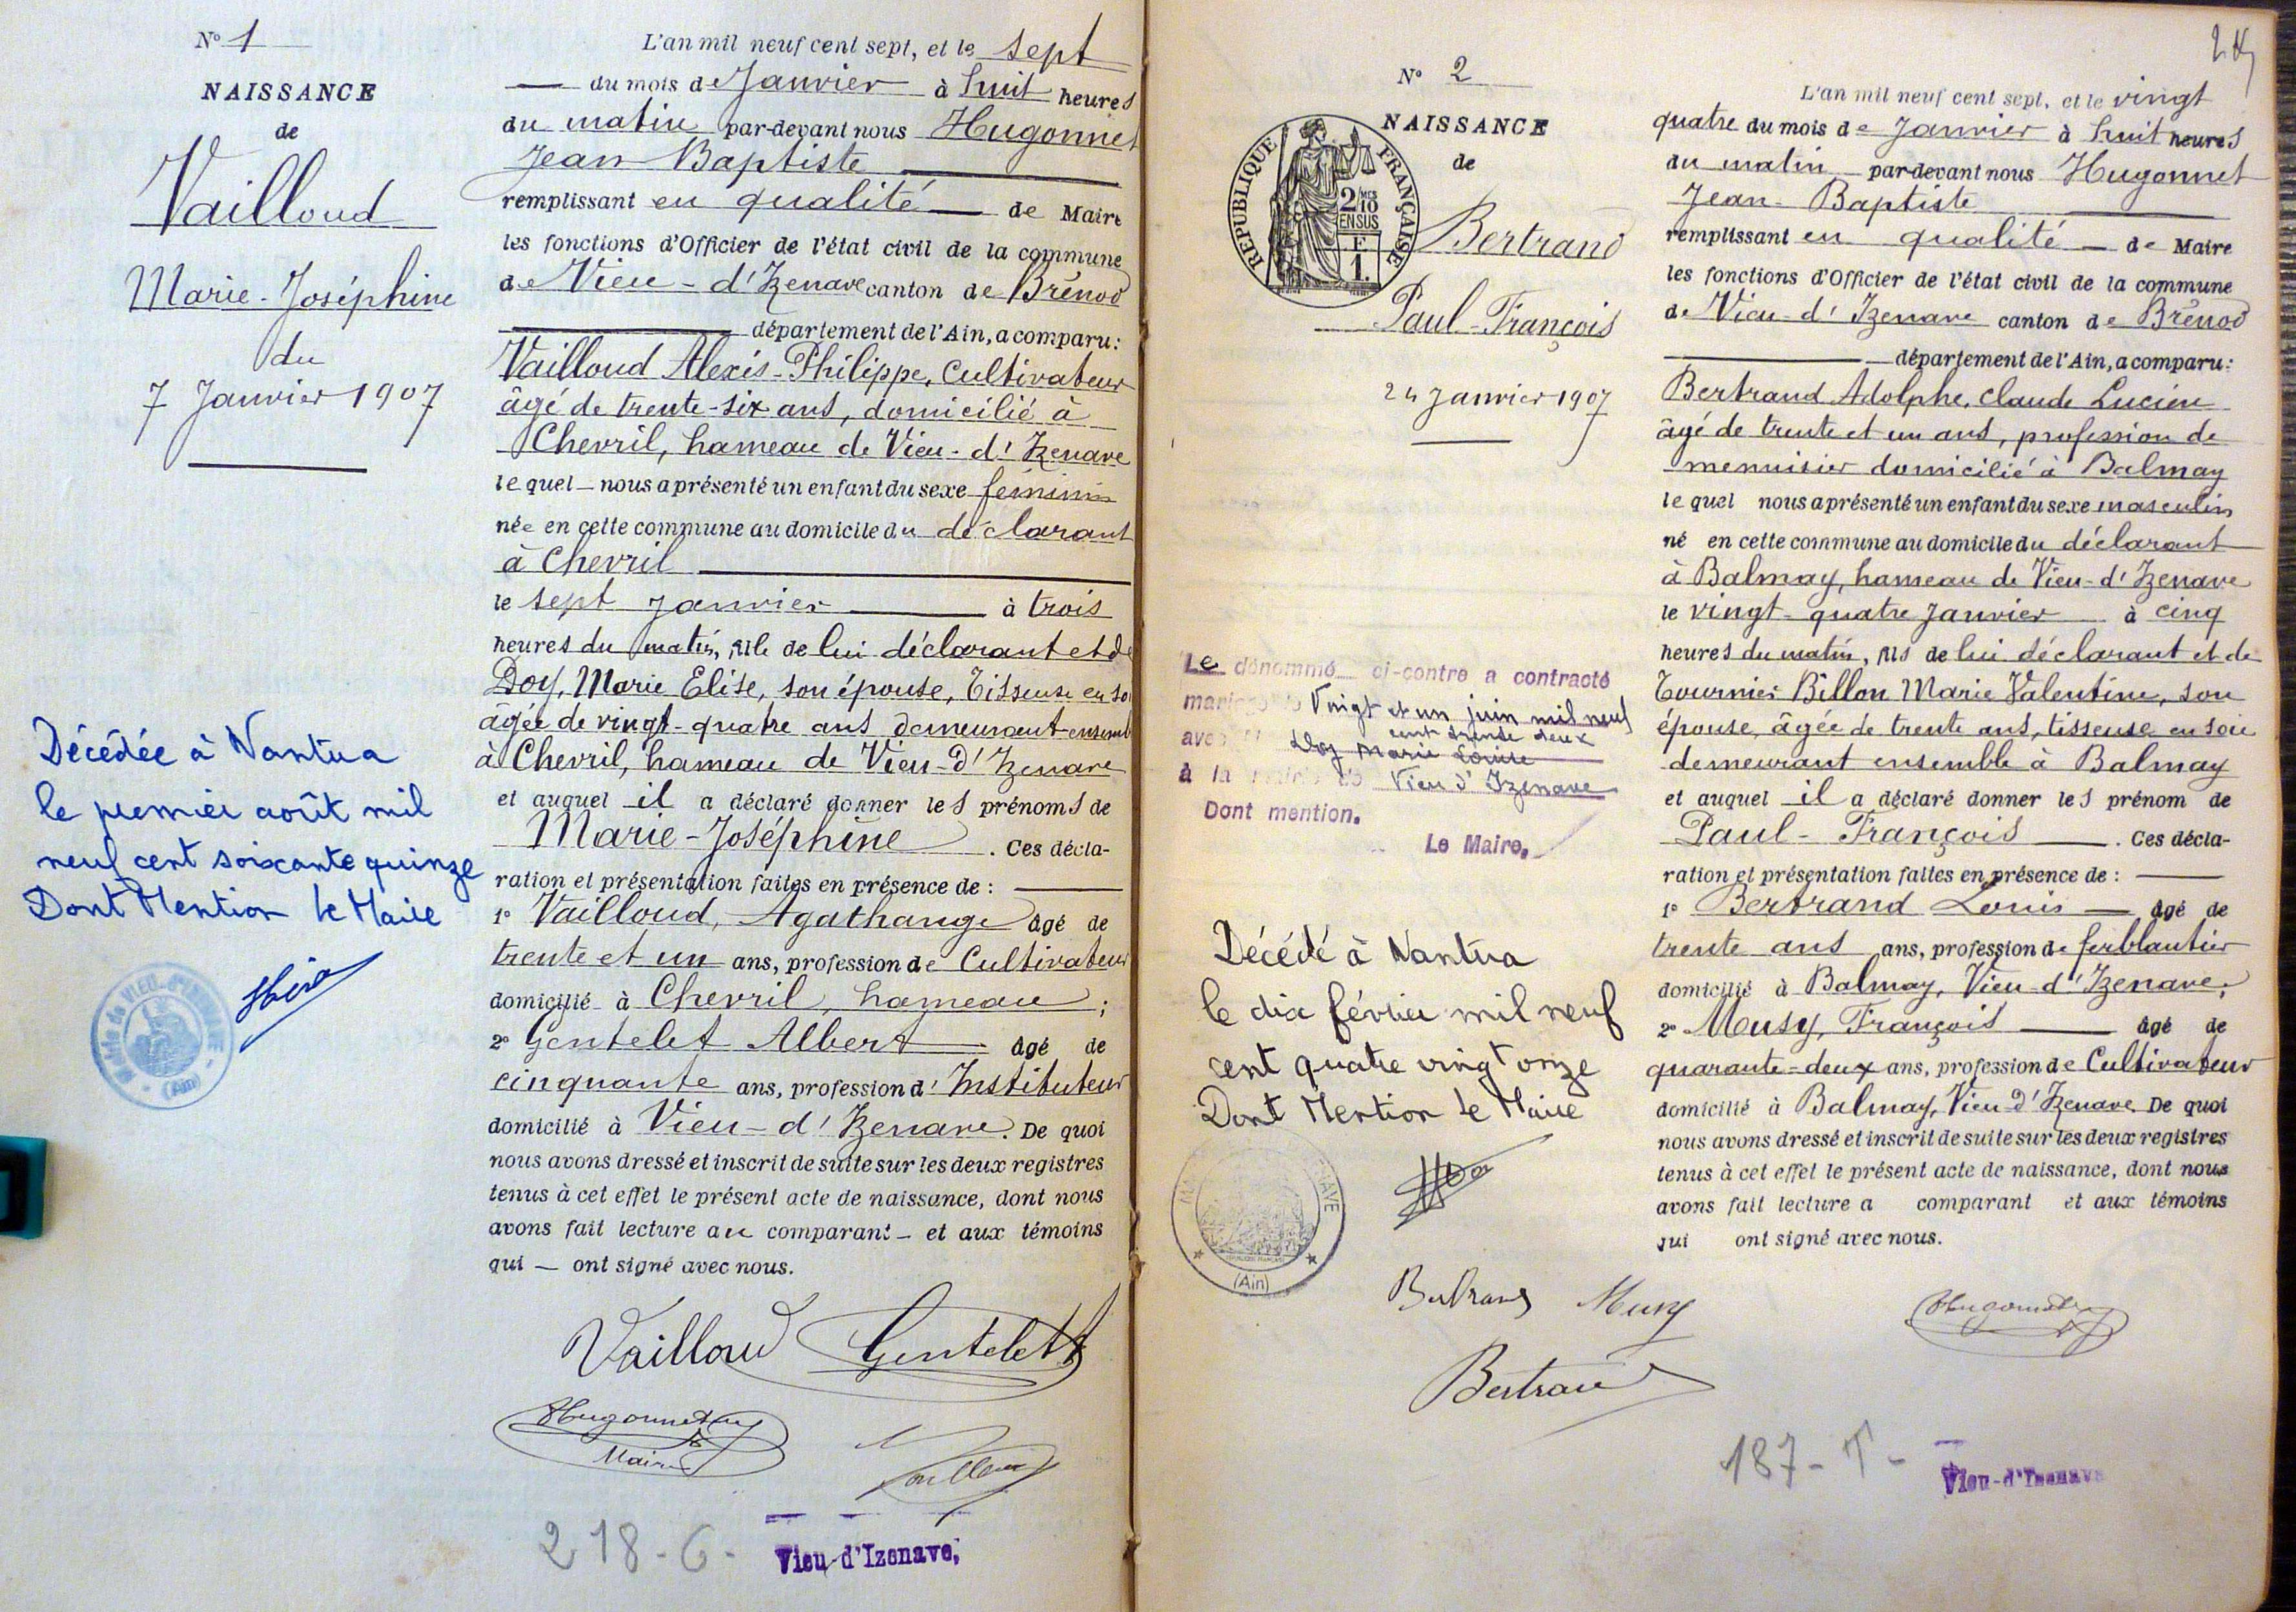 N° 1
NAISSANCE
de
Vailloud
Marie-Joséphine
du
7 Janvier 1907
Décédée à Nantua
le premier août mil
neuf cent soixante quinze
Dont Mention le Maire
Mairie de VIEU-D'IZENAVE
(Ain)
L'an mil neuf cent sept, et le sept
du mois de Janvier à huit heures
du matin par-devant nous Hugonnet
Jean Baptiste
remplissant en qualité de Maire
les fonctions d'Officier de l'état civil de la commune
de Vieu-d'Izenave canton de Brénod
département de l'Ain, a comparu:
Vailloud Alexis-Philippe, Cultivateur
âgé de trente-six ans, domicilié à
Chevril, hameau de Vieu-d'Izenave
le quel nous a présenté un enfant du sexe féminin
née en cette commune au domicile du déclarant
à Chevril
le sept Janvier à trois
heures du matin, fille de lui déclarant et de
Doy, Marie Elise, son épouse, Tisseuse en so
âgée de vingt-quatre ans demeurant ensemb
à Chevril, hameau de Vieu-d'Izenave
et auquel il a déclaré donner les prénoms de
Marie-Joséphine. Ces décla-
ration et présentation faites en présence de :
1° Vailloud, Agathange âgé de
trente et un ans, profession de Cultivateur
domicilié à Chevril, hameau ;
2° Gentelet Albert âgé de
cinquante ans, profession d'Instituteur
domicilié à Vieu-d'Izenave. De quoi
nous avons dressé et inscrit de suite sur les deux registres
tenus à cet effet le présent acte de naissance, dont nous
avons fait lecture au comparant et aux témoins
qui ont signé avec nous.
Vailloud Gentelet
Hugonnet
Maire
218-6-
Vieu-d'Izenave,
N° 2
NAISSANCE
de
RÉPUBLIQUE FRANÇAISE
2/10
EN SUS
1.
Bertrand
Paul-François
24 Janvier 1907
Le dénommé ci-contre a contracté
mariage le Vingt et un juin mil neuf
cent trente deux
avec Doy Marie Louise
à la mairie de Vieu d'Izenave
Dont mention.
Le Maire,
Décédé à Nantua
le dix février mil neuf
cent quatre vingt onze
Dont Mention le Maire
(Ain)
L'an mil neuf cent sept, et le vingt
quatre du mois de Janvier à huit heures
du matin par-devant nous Hugonnet
Jean-Baptiste
remplissant en qualité de Maire
les fonctions d'Officier de l'état civil de la commune
de Vieu-d'Izenave canton de Brénod
département de l'Ain, a comparu:
Bertrand Adolphe, Claude Lucien
âgé de trente et un ans, profession de
menuisier domicilié à Balmay
le quel nous a présenté un enfant du sexe masculin
né en cette commune au domicile du déclarant
à Balmay, hameau de Vieu-d'Izenave
le vingt-quatre Janvier à cinq
heures du matin, fils de lui déclarant et de
Tournier Billon Marie Valentine, son
épouse, âgée de trente ans, tisseuse en soie
demeurant ensemble à Balmay
et auquel il a déclaré donner les prénom de
Paul-François. Ces décla-
ration et présentation faites en présence de :
1° Bertrand Louis âgé de
trente ans ans, profession de ferblantier
domicilié à Balmay, Vieu-d'Izenave;
2° Musy, François âgé de
quarante-deux ans, profession de Cultivateur
domicilié à Balmay, Vieu d'Izenave. De quoi
nous avons dressé et inscrit de suite sur les deux registres
tenus à cet effet le présent acte de naissance, dont nous
avons fait lecture a comparant et aux témoins
qui ont signé avec nous.
Bertrand Musy Hugonnet
Bertrand
187-T-
Vieu-d'Izenave